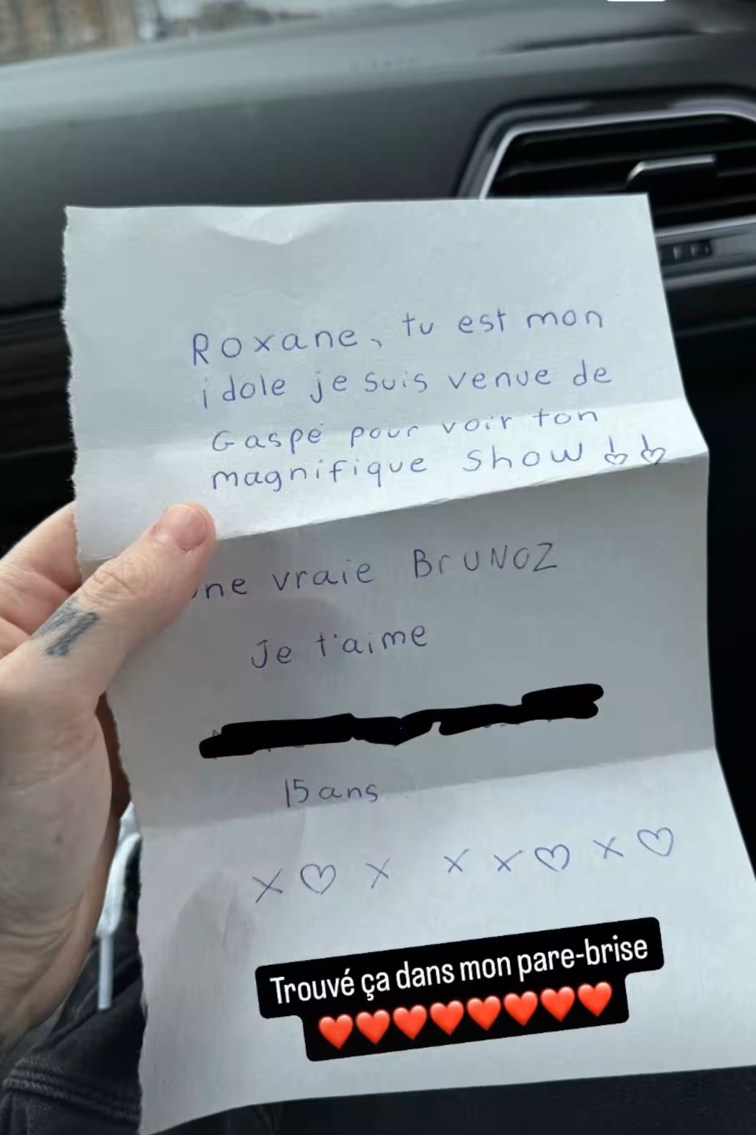 Roxane, tu est mon
idole je suis venue de
Gaspé pour voir ton
magnifique show
une vraie BrUNOZ
Je t'aime
15 ans
x ♡ x x x ♡ x ♡
Trouvé ça dans mon pare-brise
❤️❤️❤️❤️❤️❤️❤️❤️